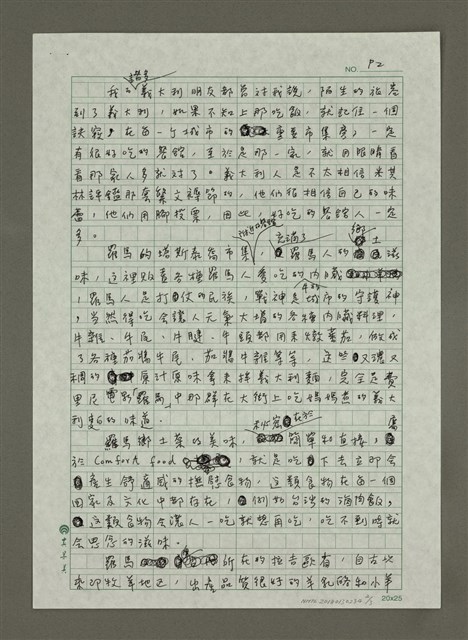 NO. P2
諸多
我的義大利朋友都曾對我說,陌生的旅者
到了義大利,如果不知上那吃飯,就記住一個
訣竅,在每一個城市的重要市集旁,一定
有很好吃的餐館,至於是那一家,就用眼睛看
看那家人多就對了。義大利人是不太相信米其
林評鑑那套繁文褥節的,他們很相信自己的味
蕾,他們用腳投票,因此,好吃的餐館人一定
多。
充滿了 鄉
羅馬的塔斯泰喬市集,羅馬人的土滋
味,這裡販賣各種羅馬人愛吃的內臟
,羅馬人是打仗的民族,戰神是城市的守護神
,當然得吃會讓人元氣大增的各種內臟料理,
牛雜、牛尾、牛腱、牛頭都用來燉蕃茄,做成
了各種茄醬牛尾、茄醬牛雜等等,這些又濃又
稠的原汁原味拿來拌義大利麵,完全是費
里尼電影「羅馬」中那群在大街上吃媽媽煮的義大
利麵的味道。
秘密在於
羅馬鄉土菜的美味,簡單和直接,屬
於Comfort food,就是吃下去立即會
產生舒適感的撫慰食物,這類食物在每一個
國家及文化中都存在,例如台灣的滷肉飯,
這類食物會讓人一吃就想再吃,吃不到時就
會思念的滋味。
羅馬所在的拉吉歐省,自古以
來即牧羊地區,出產品質很好的羊乳酪和小羊
20x25